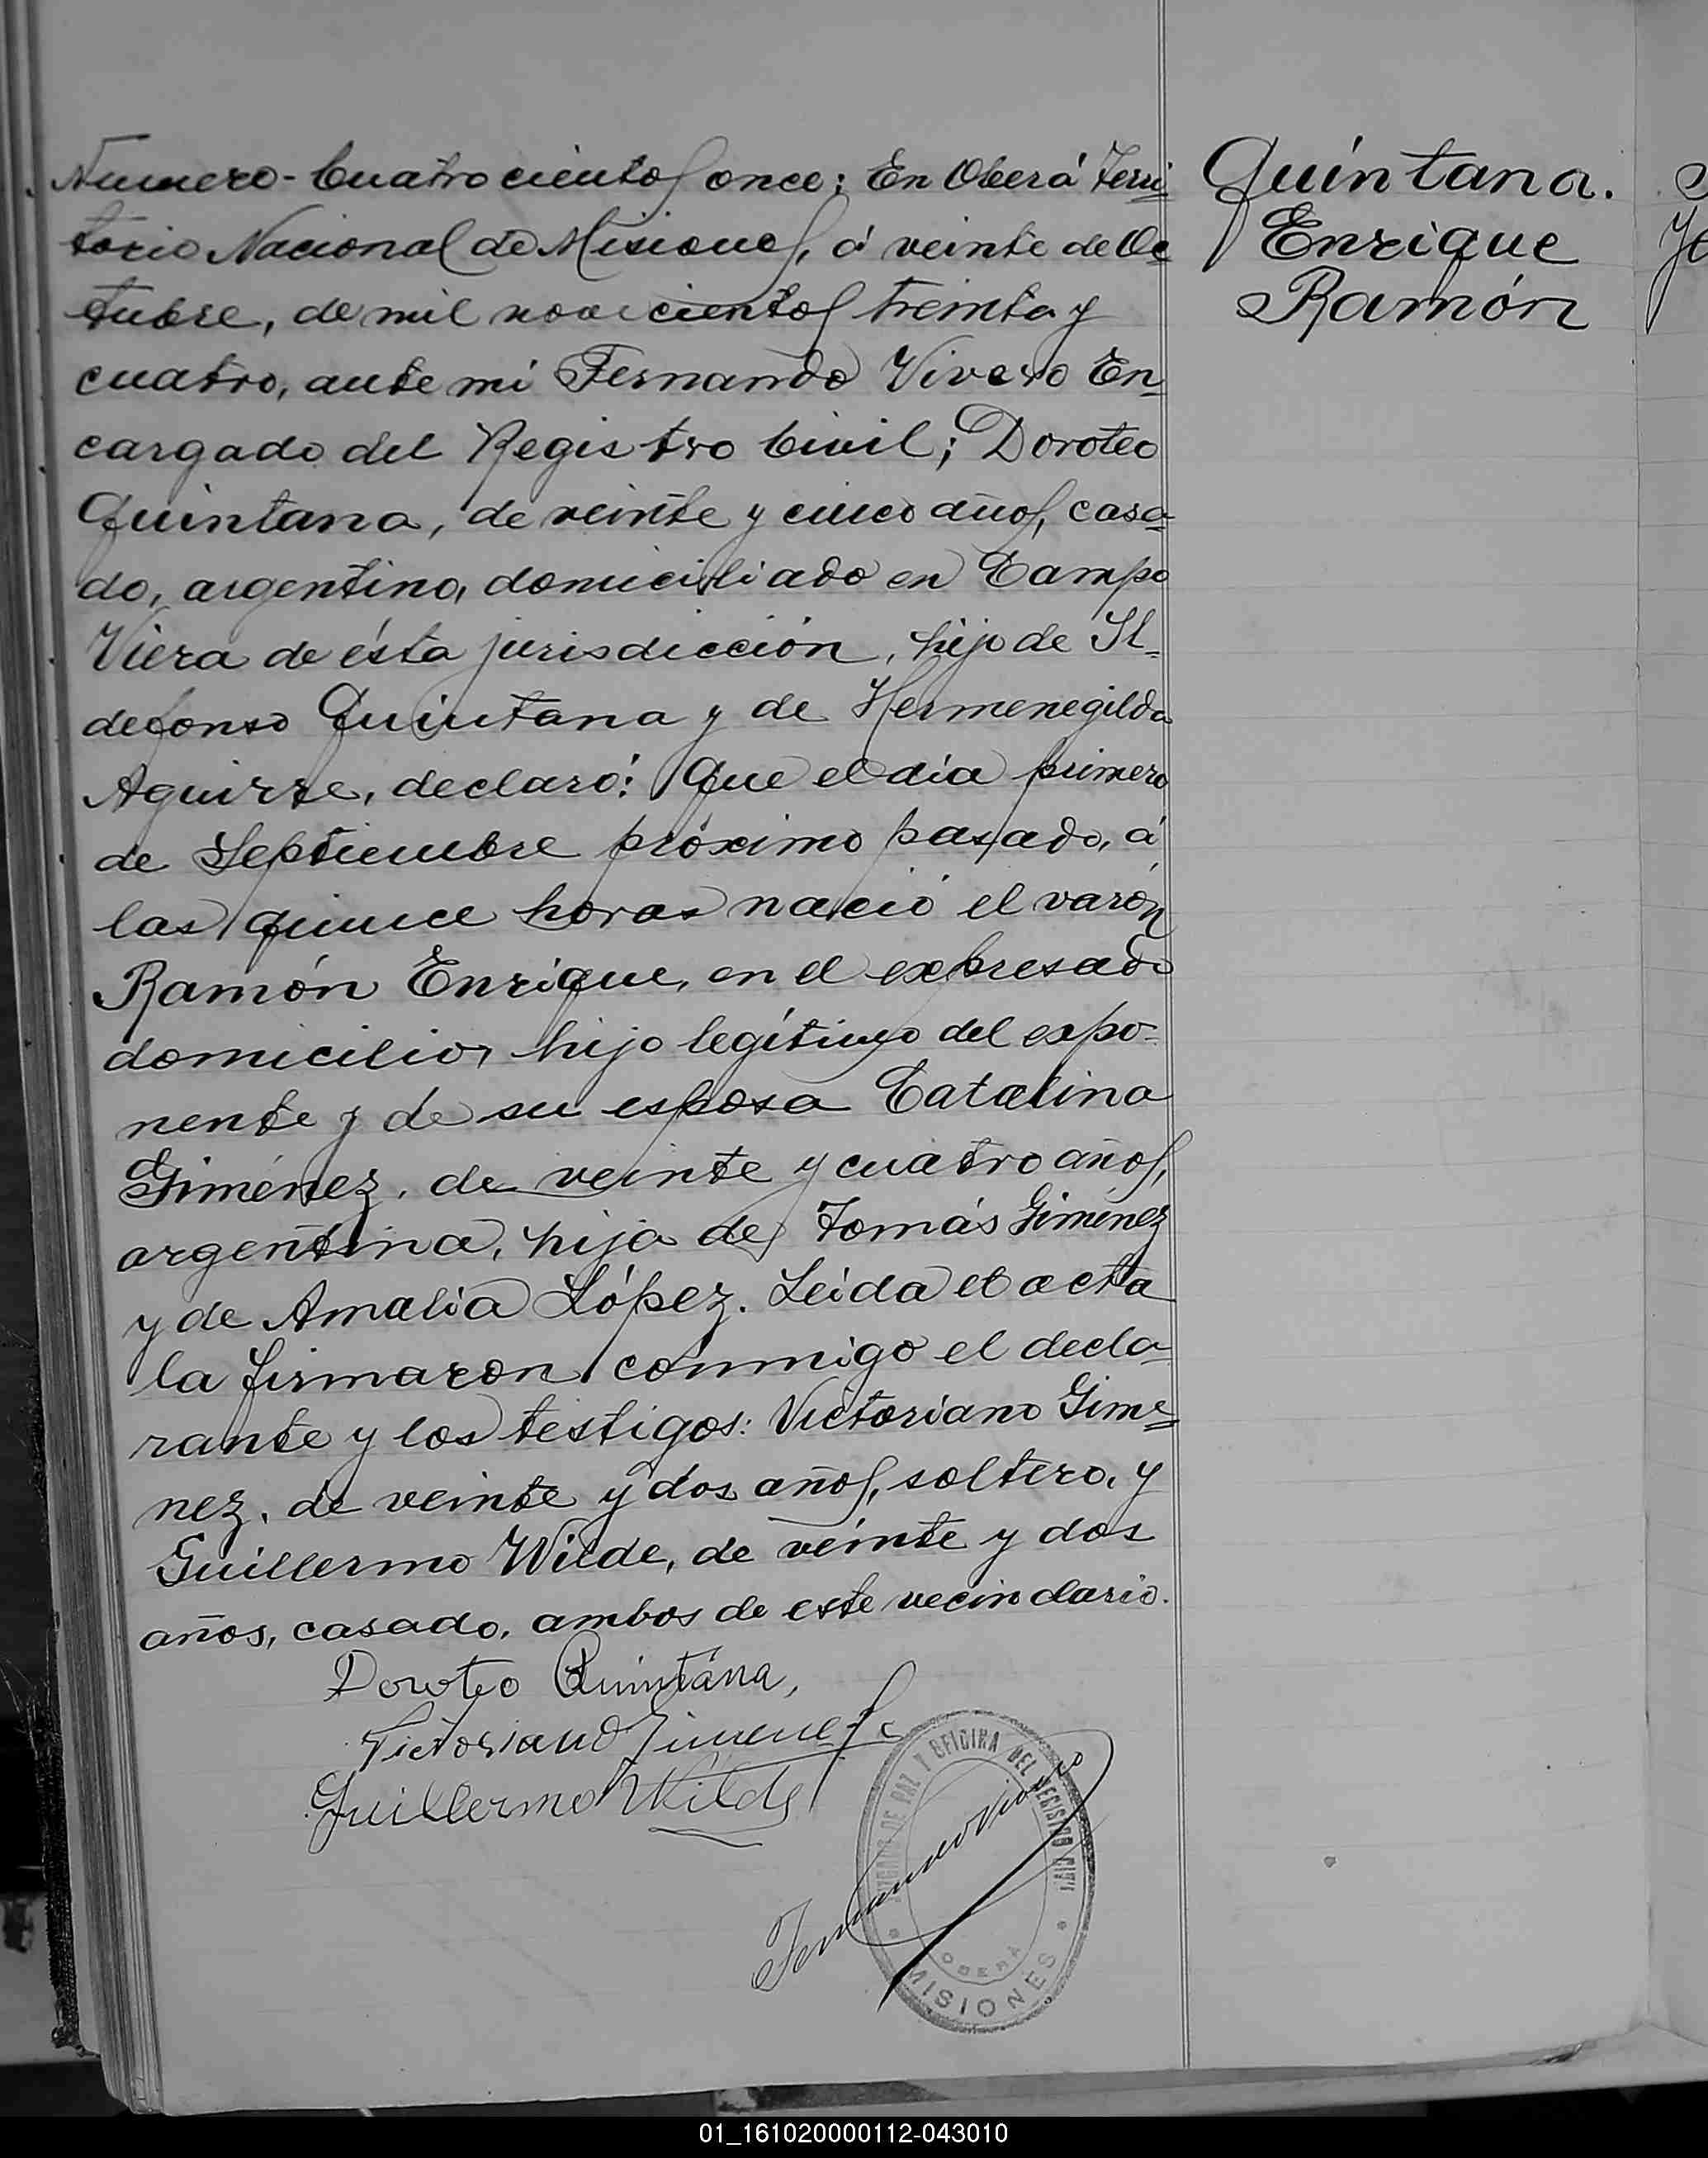 Numero-Cuatrocientos once; En Oberá Terri
torio Nacional de Misiones, á veinte de Oc
tubre, de mil novecientos treinta y
cuatro, ante mi Fernando Vivero En
cargado del Registro Civil; Doroteo
Quintana, de veinte y cinco años, casa
do, argentino, domiciliado en Campo
Viera de ésta jurisdicción, hijo de Il-
defonso Quintana y de Hermenegilda
Aguirre, declaró: Que el día primero
de Septiembre próximo pasado, á
las quince horas nació el varón
Ramón Enrique, en el expresado
domicilio, hijo legítimo del expo-
nente y de su esposa Catalina
Giménez, de veinte y cuatro años,
argentina, hija de Tomás Giménez
y de Amalia López. Leida el acta
la firmaron conmigo el decla
rante y los testigos: Victoriano Gime
nez, de veinte y dos años, soltero, y
Guillermo Wilde, de veinte y dos
años, casado, ambos de este vecindario.
Doroteo Quintána,
Victoriano Jimenez
Guillermo Wilde
Fernando Vivero
JUZGADO DE PAZ Y OFICINA DEL REGISTRO CIVIL
OBERÁ
MISIONES
Quintana.
Enrique
Ramón
01_161020000112-043010